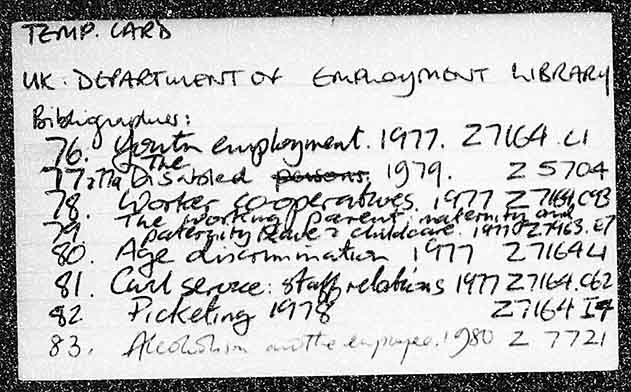 TEMP. CARD
UK. DEPARTMENT OF EMPLOYMENT LIBRARY
Bibliographies:
76. Youth employment. 1977. Z7164.L1
77+77a The Disabled persons. 1979. Z 5704
78. Worker co-operatives. 1977 Z7164.C93
79. The working parent: maternity and
paternity leave & childcare. 1977 Z7963.E7
80. Age discrimination 1977 Z7164L1
81. Civil service: staff relations 1977 Z7164.C62
82 Picketing 1978 Z7164 I4
83. Alcoholism and the employee. 1980 Z 7721